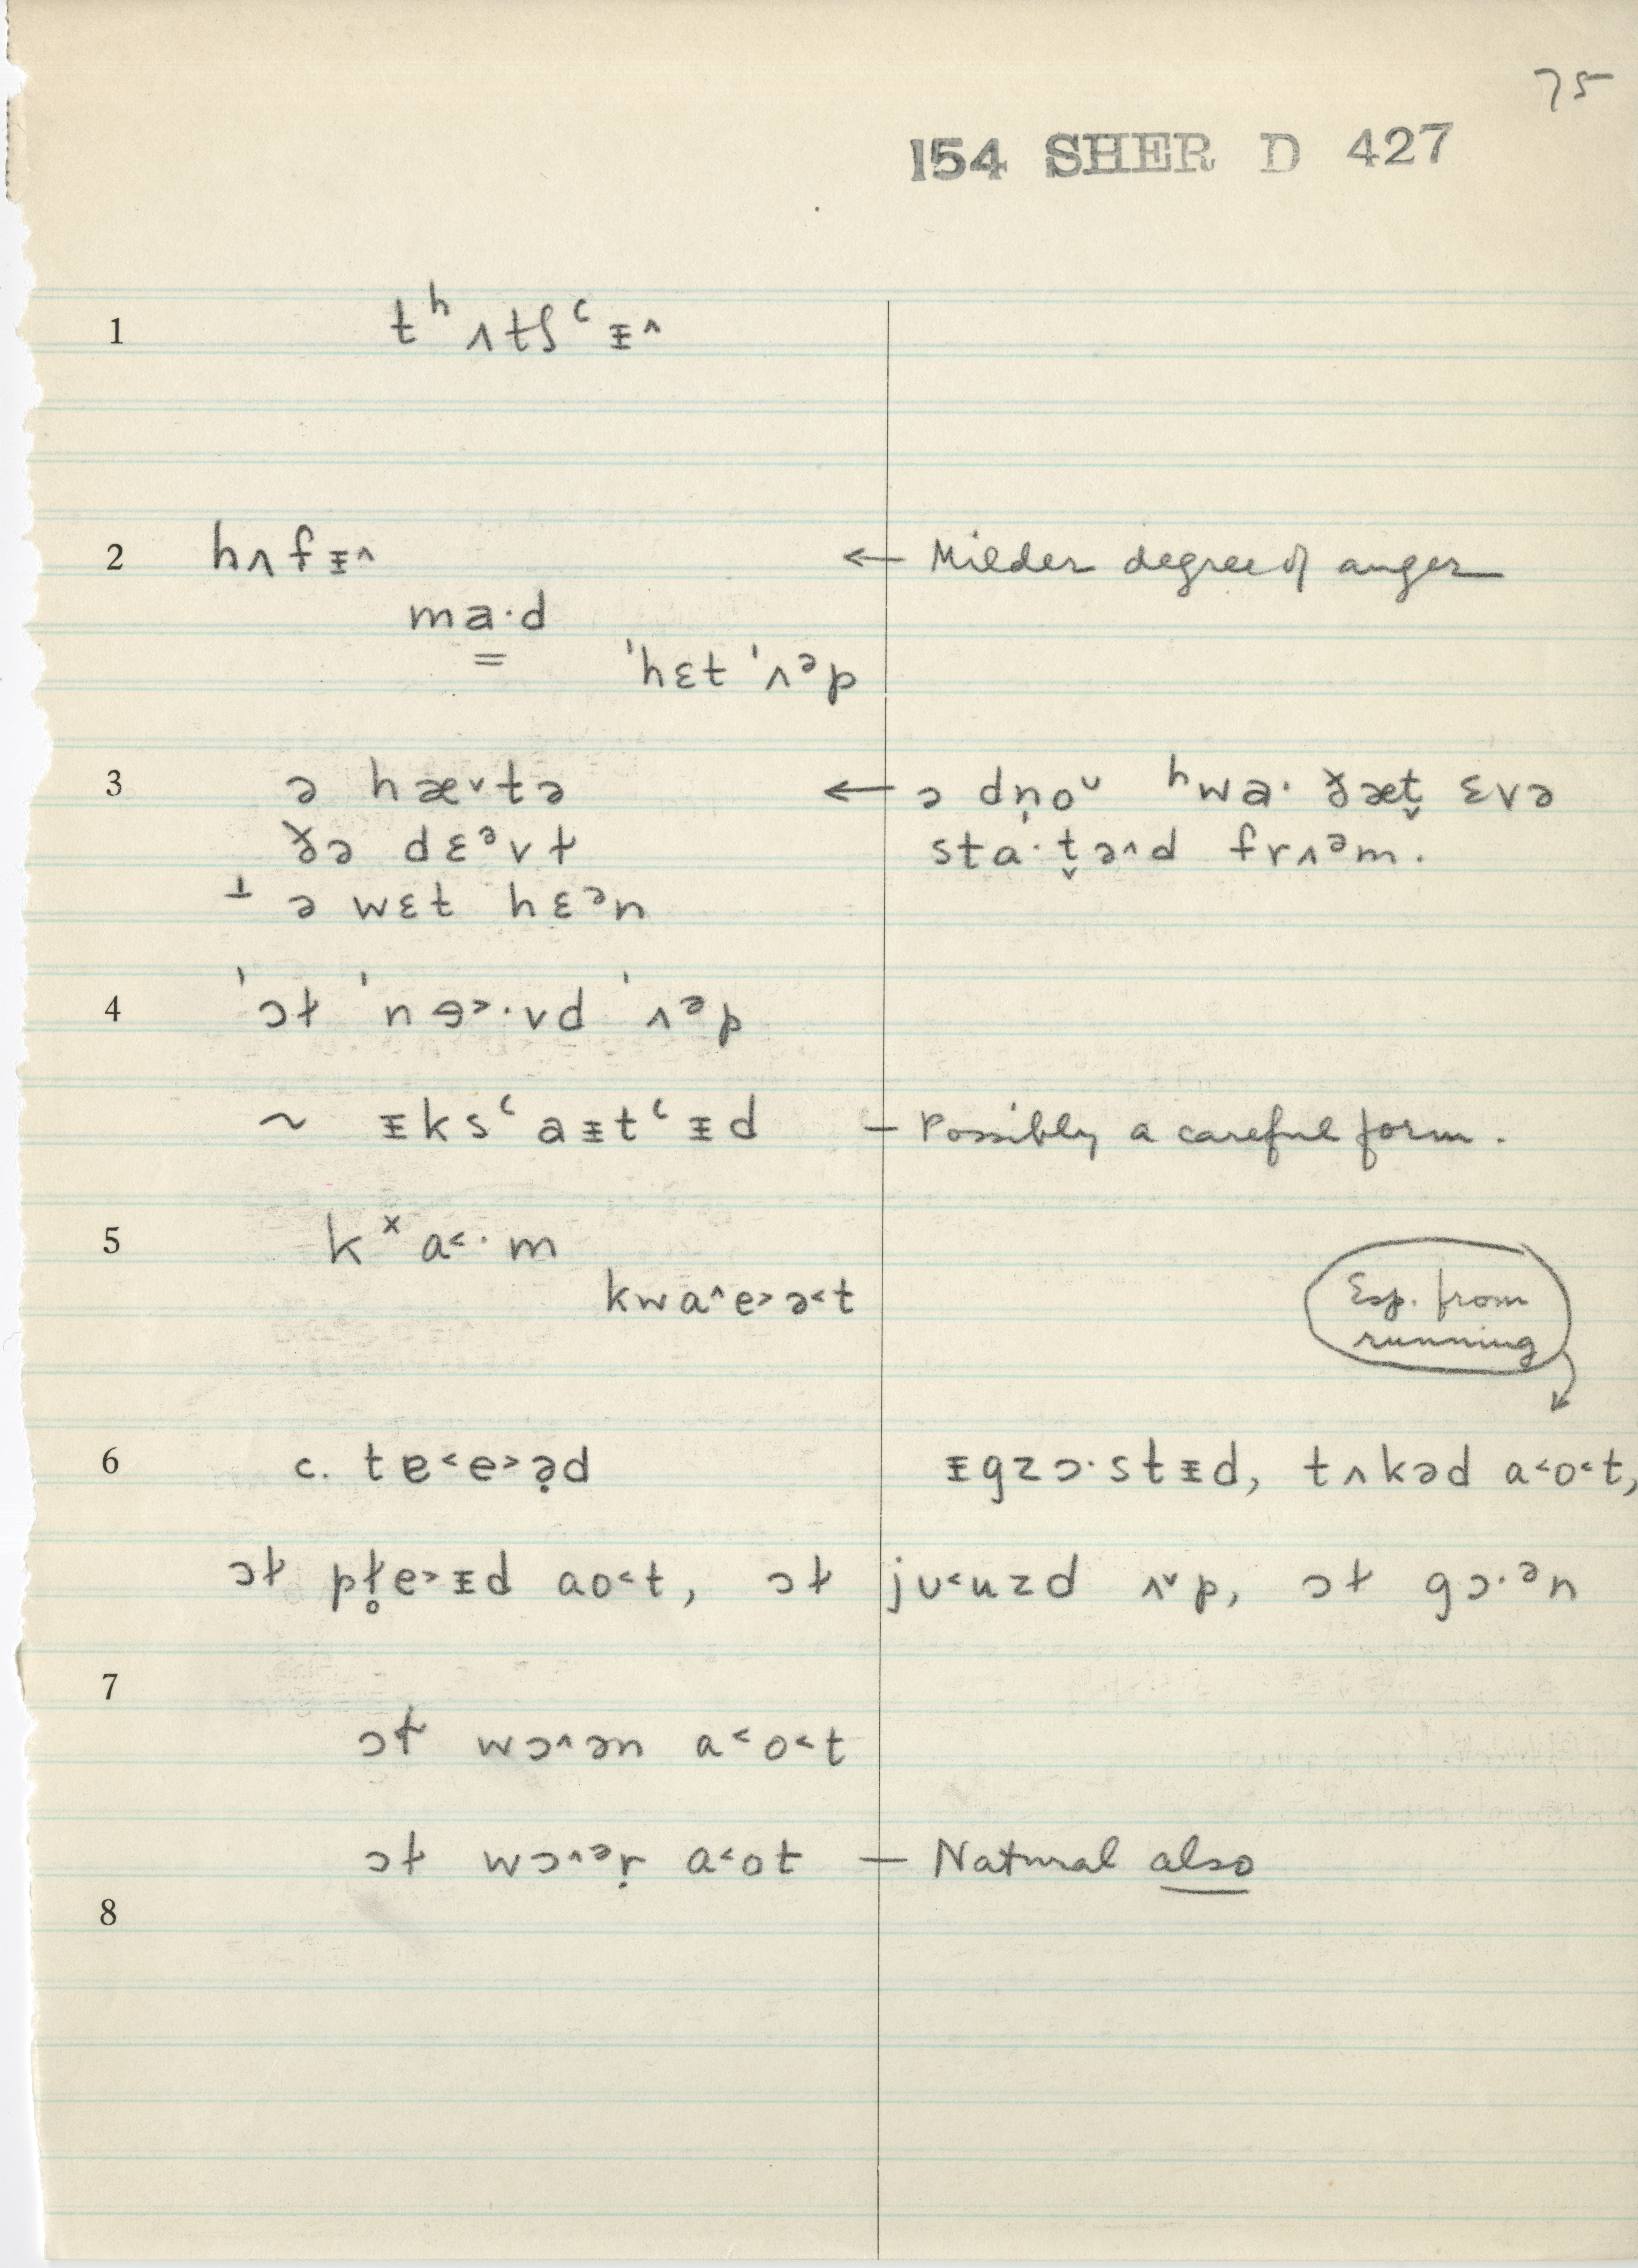 75
154 SHER D 427
1 tʰʌtʃʿᵻ^
2 hʌfᵻ^ ← Milder degree of anger
ma·d
=
'hɛt 'ʌᵊp
3 ə hæ˅tə ← ə dn̩o˘ ʰwa· ðæt̬ ɛvə
ðə dɛᵊvɫ sta·t̬ə^d frʌᵊm.
⊥ ə wɛt hɛᵊn
4 'ɔɫ 'nɘ˃·vd 'ʌᵊp
~ ᵻksʿaᵻtʿᵻd – Possibly a careful form.
5 kˣa˂·m
kwa^e˃ə˂t
Esp. from
running
6 c. tɐ˂e˃ə̣d ᵻgzɔ·stᵻd, tʌkəd a˂o˂t,
ɔɫ pɫ̥e˃ᵻd ao˂t, ɔɫ jʊ˂uzd ʌ˅p, ɔɫ gɔ·ᵊn
7
ɔɫ wɔ^ən a˂o˂t
ɔɫ wɔ^ᵊṛ a˂ot – Natural also
8